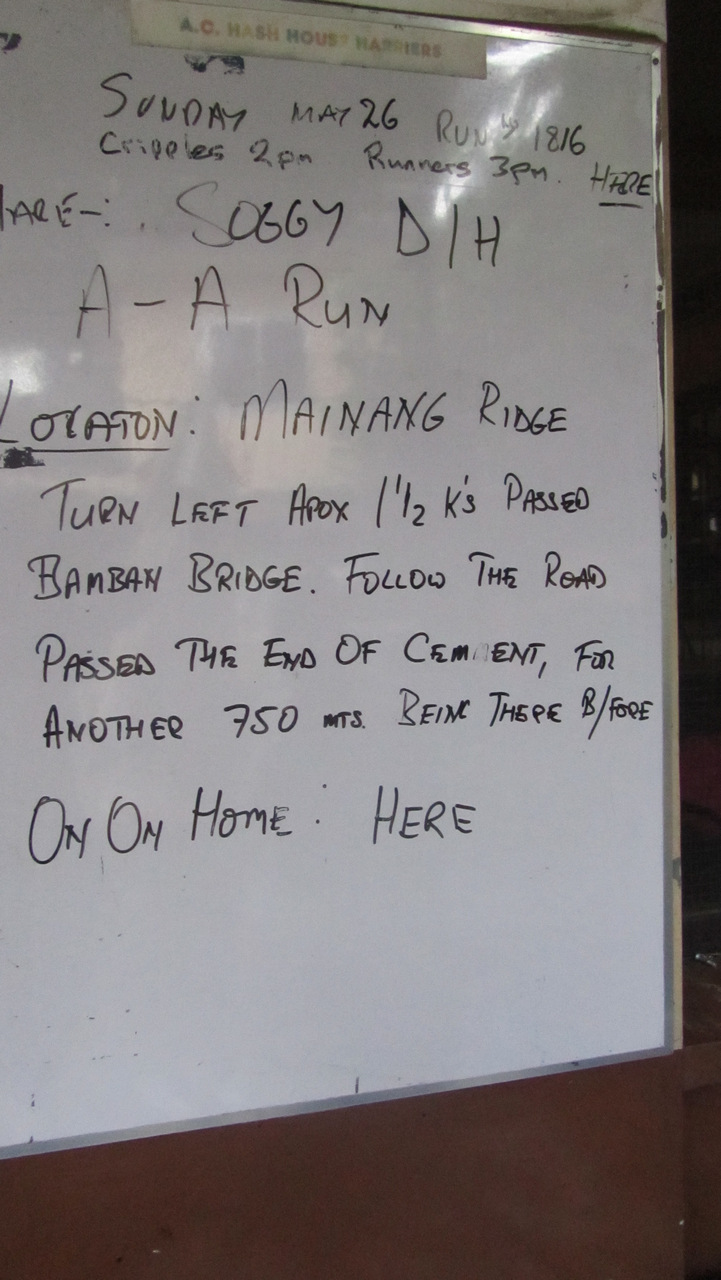 A.C. HASH HOUSE HARRIERS
SUNDAY MAY 26 RUN # 1816
Cripples 2pm Runners 3pm. HERE
HARE-: SOGGY D/H
A-A RUN
LOCATON: MAINANG RIDGE
TURN LEFT APOX 1 1/2 K'S PASSED
BAMBAN BRIDGE. FOLLOW THE ROAD
PASSED THE END OF CEMENT, FOR
ANOTHER 750 MTS. BEING THERE B/FORE
ON ON HOME: HERE